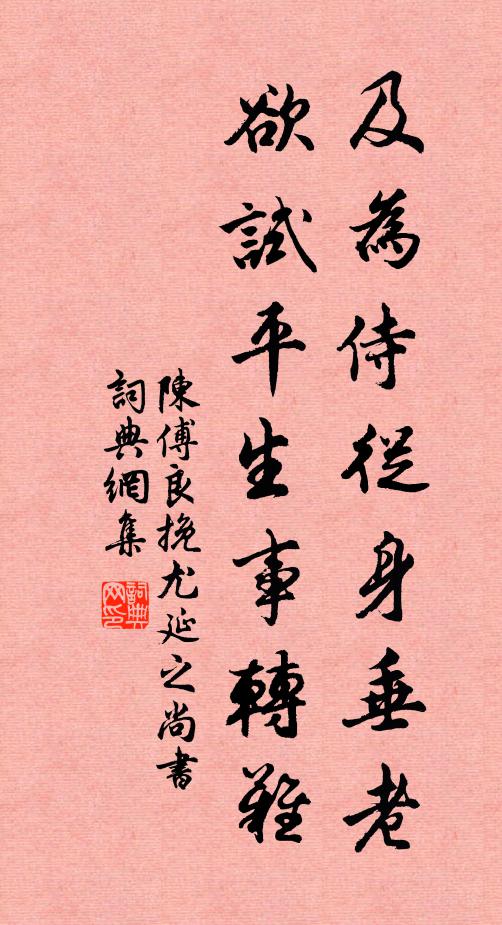 及為侍從身垂老
欲試平生事轉難
陳傅良挽尤延之尚書
詞典網集
詞典网印